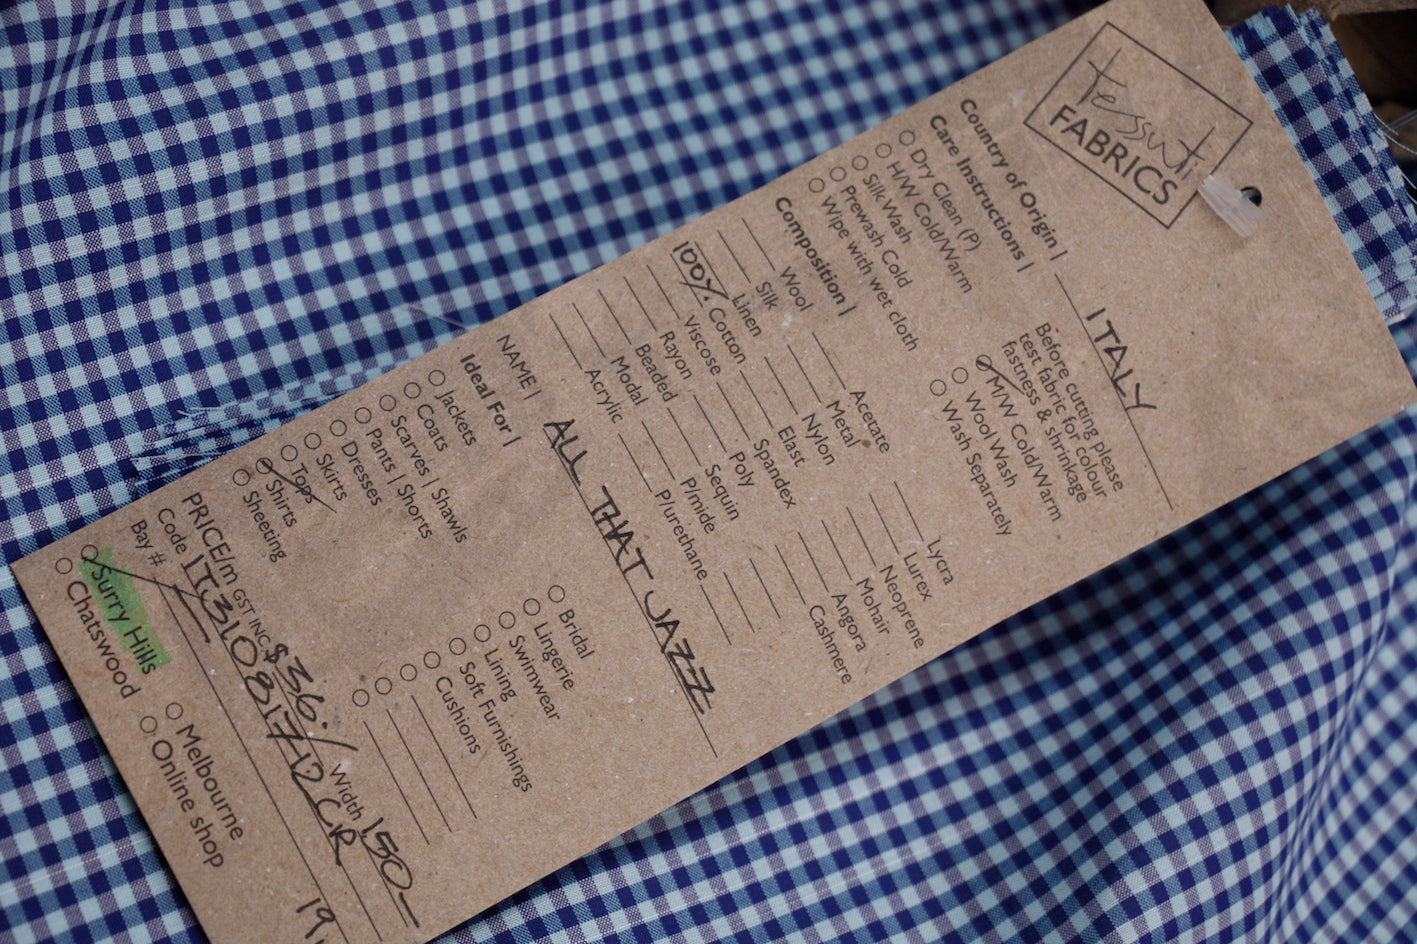 tessuti
FABRICS
Country of Origin | ITALY
Care Instructions |
Before cutting please
test fabric for colour
fastness & shrinkage
Dry Clean (P)
H/W Cold/Warm
Silk Wash
Prewash Cold
Wipe with wet cloth
M/W Cold/Warm
Wool Wash
Wash Separately
Composition |
Wool
Silk
Linen
100% Cotton
Viscose
Rayon
Beaded
Modal
Acrylic
Acetate
Metal
Nylon
Elast
Spandex
Poly
Sequin
P/mide
P/urethane
Lycra
Lurex
Neoprene
Mohair
Angora
Cashmere
NAME | ALL THAT JAZZ
Ideal For |
Jackets
Coats
Scarves | Shawls
Pants | Shorts
Dresses
Skirts
Tops
Shirts
Sheeting
Bridal
Lingerie
Swimwear
Lining
Soft Furnishings
Cushions
PRICE/m GST INC $36./ Width 150
Code IT310817/12CR
Bay # 19
Surry Hills
Chatswood
Melbourne
Online shop